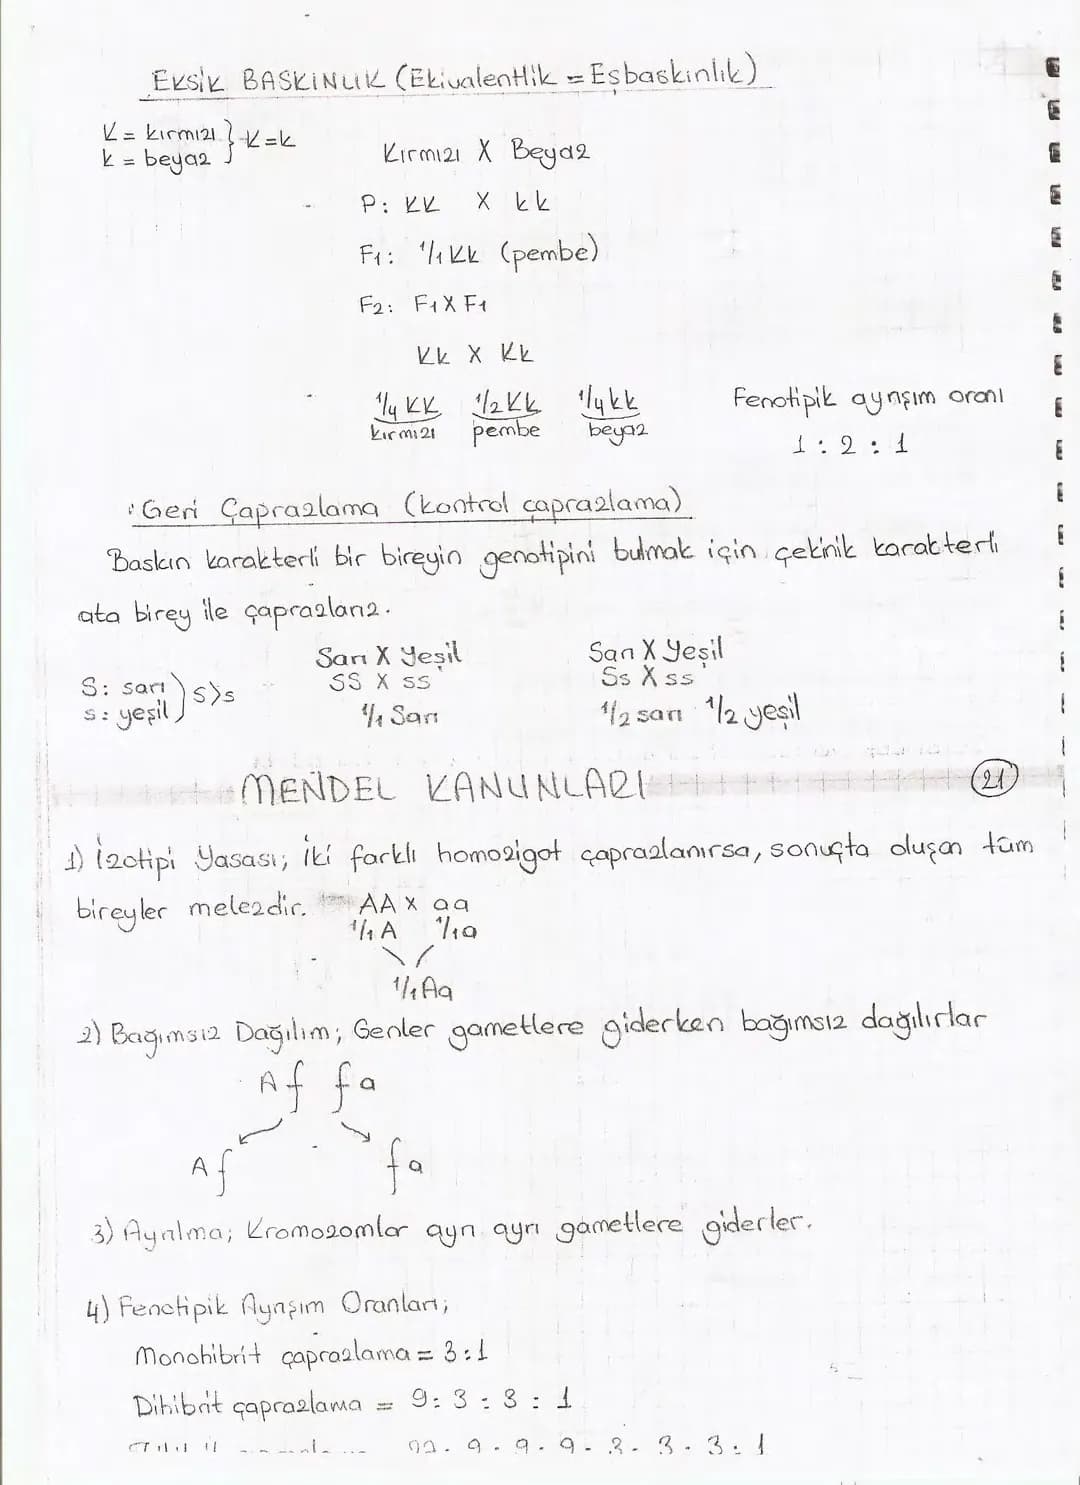 EKSİK BASKINLIK (Ekivalentlik = Eşbaskınlık)
K = kırmızı } K=k
k = beyaz
Kırmızı X Beyaz
P: KK X kk
F1: 1/1 Kk (pembe)
F2: F1 X F1
Kk X Kk
1/4 KK 1/2 Kk 1/4 kk
kırmızı pembe beyaz
Fenotipik ayrışım oranı
1 : 2 : 1
Geri Çaprazlama (kontrol çaprazlama)
Baskın karakterli bir bireyin genotipini bulmak için çekinik karakterli
ata birey ile çaprazlanz.
S: sarı } S>s
s: yeşil
Sarı X Yeşil
SS X ss
1/1 Sarı
Sarı X Yeşil
Ss X ss
1/2 sarı 1/2 yeşil
MENDEL KANUNLARI
21
1) İzotipi Yasası; İki farklı homozigot çaprazlanırsa, sonuçta oluşan tüm
bireyler melezdir. AA x aa
1/1 A 1/1 a
1/1 Aa
2) Bağımsız Dağılım; Genler gametlere giderken bağımsız dağılırlar
Af fa
Af fa
3) Ayrılma; Kromozomlar ayrı ayrı gametlere giderler.
4) Fenotipik Ayrışım Oranları;
Monohibrit çaprazlama = 3:1
Dihibrit çaprazlama = 9: 3 : 3 : 1
9 . 9 . 9 . 3 . 3 . 3 : 1